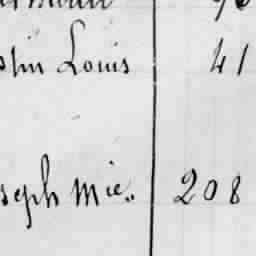 stin Louis 41
seph Mie.. 208